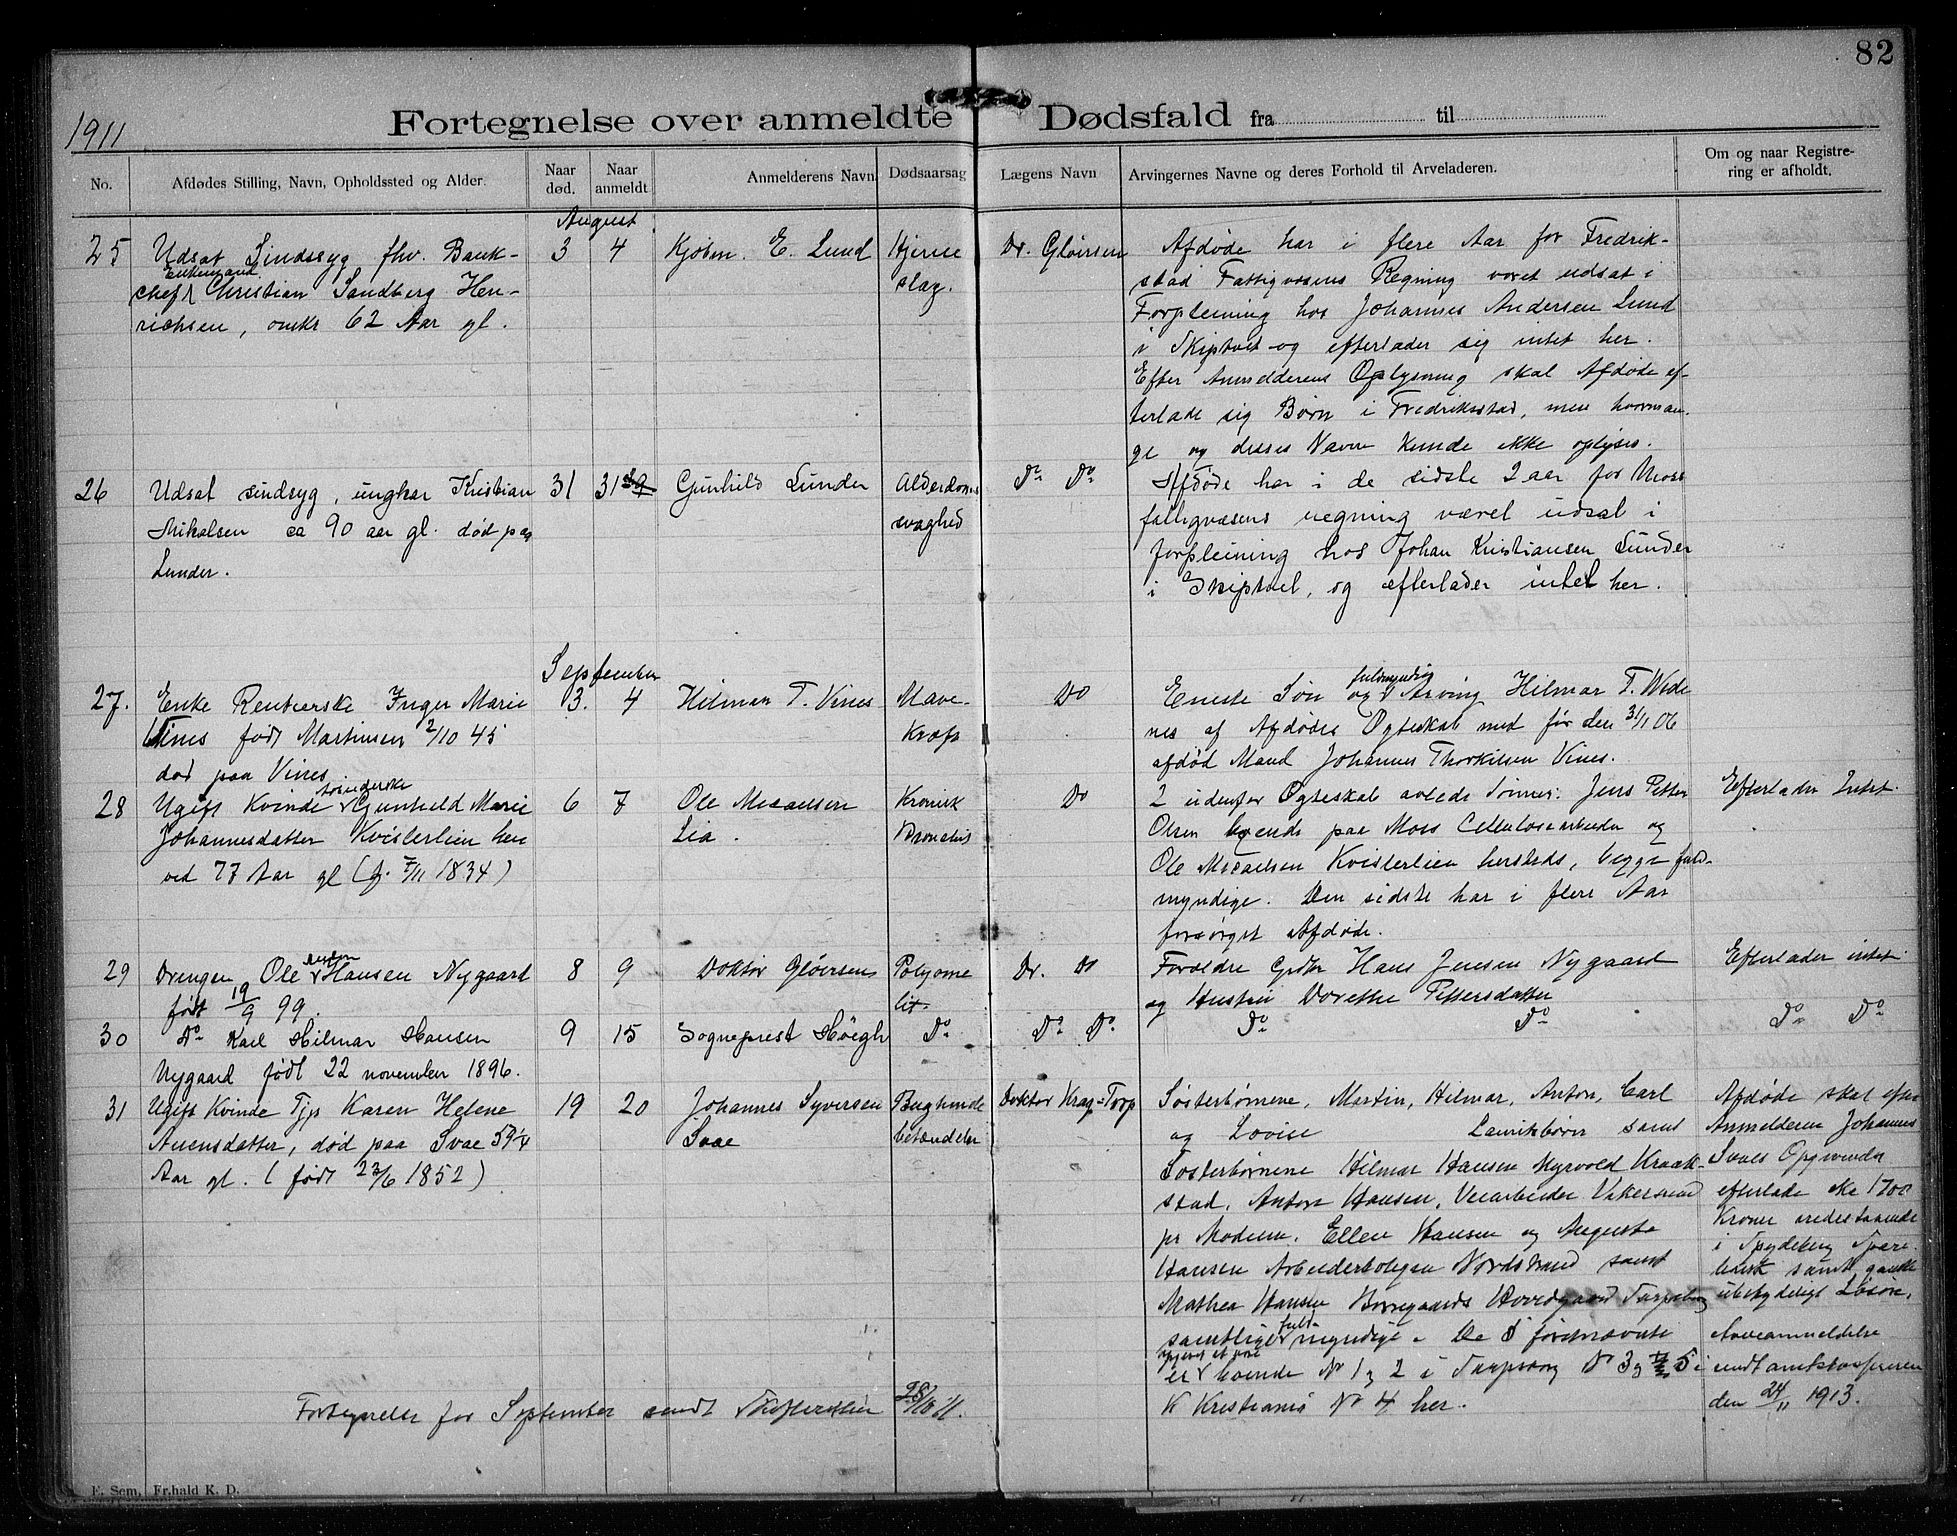 82
1911
Fortegnelse over anmeldte Dødsfald fra til
No.
Afdødes Stilling, Navn, Opholdssted og Alder.
Naar død.
Naar anmeldt
Anmelderens Navn.
Dødsaarsag
Lægens Navn
Arvingernes Navne og deres Forhold til Arveladeren.
Om og naar Registrering er afholdt.
August
25
Udsat Sindssyg fhv. Bank-
Enkemand
chef Christian Sandberg Hen-
richsen, omkr 62 Aar gl.
3
4
Kjøbm. E. Lund
Hjerne
slag.
Dr. Gløersen
Afdøde har i flere Aar for Fredrik-
stad Fattigvæsens Regning været udsat i
Forpleining hos Johannes Andersen Lund
i Skiptvet og efterlader sig intet her.
Efter Anmelderens Oplysning skal Afdøde ef-
terlade sig Børn i Fredriksstad, men hvorman-
ge og disses Navne kunde ikke oplyses.
26
Udsat sindsyg, ungkar Kristian
Mikalsen ca 90 aar gl. død paa
Lunder.
31
31
Gunhild Lunder
Alderdoms
svaghed
Do Do
Afdøde har i de sidste 2 aar for Moss
fattigvæsens regning været udsat i
forpleining hos Johan Kristiansen Lunder
i Skiptvet, og efterlader intet her.
September
27.
Enke Rentierske Inger Marie
Vines født Martinsen 2/10 45
død paa Vines
3.
4
Hilmar T. Vines
Mave-
kræft
Do
fuldmyndig
Eneste Søn og Arving Hilmar T. Vi
nes af Afdødes Ægteskab med før den 31/1 06
afdød Mand Johannes Thorkilsen Vines.
28
Ugift Kvinde Gunhild Marie
Johannesdatter Kvisterlien hen
ved 77 Aar gl (f. 7/11 1834)
6
7
Ole Micaelsen
Lia.
Kronisk
Bronchit
Do
2 udenfor Ægteskab avlede Sønner: Jens Petter
Olsen boende paa Moss Cellulosearbeider og
Ole Micaelsen Kvisterlien hersteds, begge fuld-
myndige. Den sidste har i flere Aar
forsørget Afdøde.
Efterlader Intet.
29
Drengen Ole Hansen Nygaard
født 19/9 99.
8
9
Doktor Gløersen
Polyome
lit.
Dr. Do
Forældre Grdbr Hans Jensen Nygaard
og Hustru Dorethe Pettersdatter
Efterlader intet.
30
Do Karl Hilmar Hansen
Nygaard født 22 november 1896.
9
15
Sogneprest Høegh
Do
Do Do
Do Do
Do Do
31
Ugift Kvinde Tjp Karen Helene
Auensdatter, død paa Svae 59 1/4
Aar gl. (født 22/6 1852)
19
20
Johannes Syversen
Svae
Bughinde
betændelse
Doktor Krag-Torp
Søsterbørnene, Martin, Hilmar, Anton, Carl
og Lovise Lauritsbørn samt
Søsterbørnene Hilmar Hansen Myrvold Kraak-
stad, Anton Hansen, Veiarbeider Vikersund
pr Modum. Ellen Hansen og Augusta
Hansen Arbeiderboligen Nordstrand samt
Mathea Hansen Borregaards Hovedgaard Sarpsborg
fuld-
samtlige myndige. De 5 førstnævnte
er boende No 1 og 2 i Sarpsborg No 3 og 5 i
Kristiania No 4 her.
Afdøde skal efter
Anmelderen Johannes
Svaes Opgivende
efterlade ca 1700
Kroner indestaaende
i Spydeberg Spare-
bank samt ganske
ubetydeligt Løsøre.
Arveanmeldelse
sendt amtskassereren
den 24/11 1913.
Fortegnelse for September sendt Skifteretten 28/10 11.
E. Sem, Fr.hald K. D.